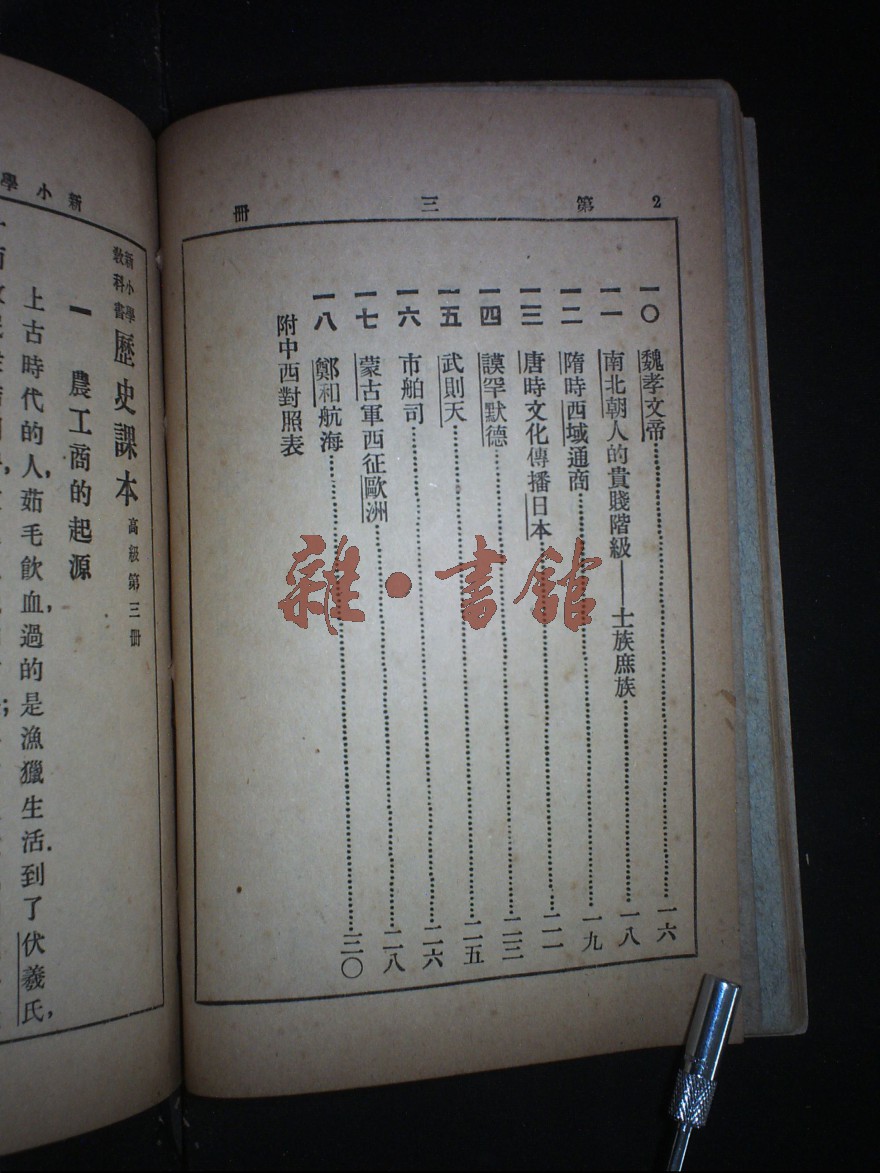 2 第三冊
一〇 魏孝文帝……一六
一一 南北朝人的貴賤階級——士族庶族……一八
一二 隋時西域通商……一九
一三 唐時文化傳播日本……二一
一四 謨罕默德……二三
一五 武則天……二五
一六 市舶司……二六
一七 蒙古軍西征歐洲……二八
一八 鄭和航海……三〇
附中西對照表
新小學
新小學教科書 歷史課本 高級第三冊
一 農工商的起源
上古時代的人，茹毛飲血，過的是漁獵生活．到了伏羲氏，
雜·書館